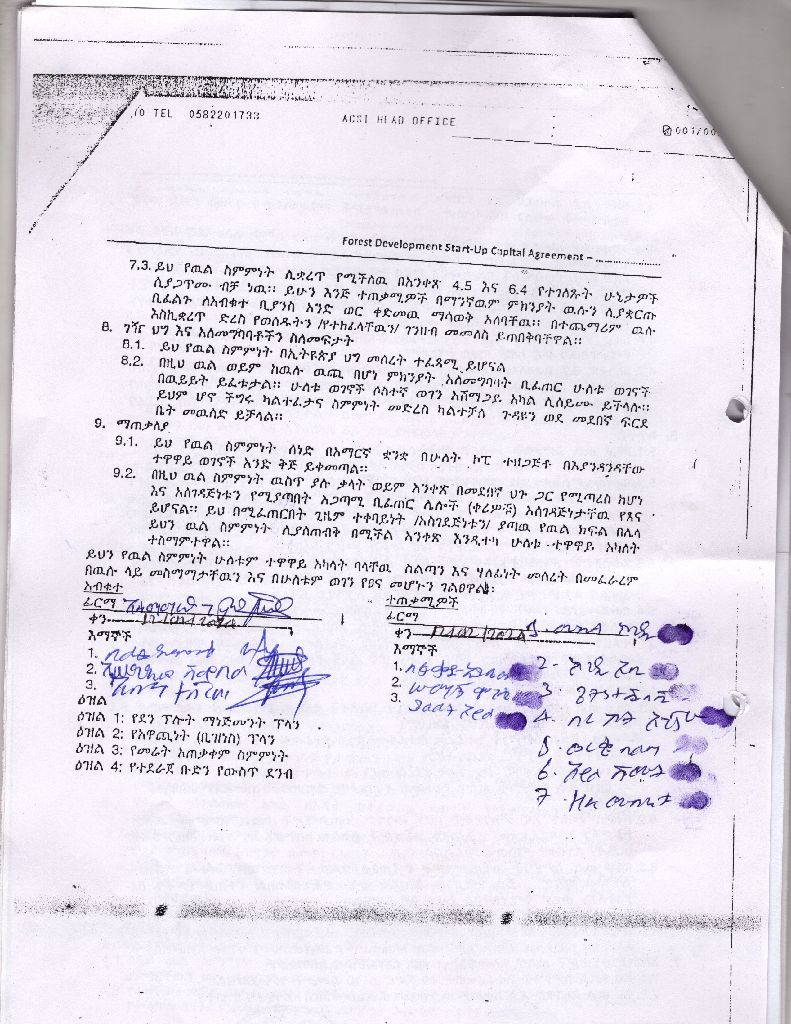 TEL 0582201733 ACSI HEAD OFFICE 001/00
Forest Development Start-Up Capital Agreement – ..................
7.3. ይህ የዉል ስምምነት ሊቋረጥ የሚችለዉ በአንቀጽ 4.5 እና 6.4 የተገለጹት ሁኔታዎች
ሲያጋጥሙ ብቻ ነዉ፡፡ ይሁን እንጅ ተጠቃሚዎች በማንኛዉም ምክንያት ዉሉን ሊያቋርጡ
ቢፈልጉ ለአብቁተ ቢያንስ አንድ ወር ቀድመዉ ማሳወቅ አለባቸዉ፡፡ በተጨማሪም ዉሉ
እስኪቋረጥ ድረስ የወሰዱትን /የተከፈላቸዉን/ ገንዘብ መመለስ ይጠበቅባቸዋል፡፡
8. ገዥ ህግ እና አለመግባባቶችን ስለመፍታት
8.1. ይህ የዉል ስምምነት በኢትዩጵያ ህግ መሰረት ተፈጻሚ ይሆናል
8.2. በዚህ ዉል ወይም ከዉሉ ዉጪ በሆነ ምክንያት አለመግባባት ቢፈጠር ሁለቱ ወገኖች
በዉይይት ይፈቱታል፡፡ ሁለቱ ወገኖች ሶስተኛ ወገን አሸማጋይ አካል ሊሰይሙ ይችላሉ፡፡
ይህም ሆኖ ችግሩ ካልተፈታና ስምምነት መድረስ ካልተቻለ ጉዳዩን ወደ መደበኛ ፍርድ
ቤት መዉሰድ ይቻላል፡፡
9. ማጠቃለያ
9.1. ይህ የዉል ስምምነት ሰነድ በአማርኛ ቋንቋ በሁለት ኮፒ ተዘጋጅቶ በእያንዳንዳቸው
ተዋዋይ ወገኖች አንድ ቅጅ ይቀመጣል፡፡
9.2. በዚህ ዉል ስምምነት ዉስጥ ያሉ ቃላት ወይም አንቀጽ በመደበኛ ህጉ ጋር የሚጣረስ ከሆነ
እና አስገዳጅነቱን የሚያጣበት አጋጣሚ ቢፈጠር ሌሎች (ቀሪዎቹ) አስገዳጅነታቸዉ የጸና
ይሆናል፡፡ ይህ በሚፈጠርበት ጊዜም ተቀባይነት /አስገደጅነቱን/ ያጣዉ የዉል ክፍል በሌላ
ይህን ዉል ስምምነት ሊያስጠብቅ በሚችል አንቀጽ እንዲተካ ሁለቱ ተዋዋይ አካላት
ተስማምተዋል፡፡
ይህን የዉል ስምምነት ሁለቱም ተዋዋይ አካላት ባላቸዉ ስልጣን እና ሃላፊነት መሰረት በመፈራረም
በዉሉ ላይ መስማማታቸዉን እና በሁለቱም ወገን የፀና መሆኑን ገልፀዋል፡
አብቁተ
ፊርማ
ቀን
እማኞች
1.
2.
3.
ተጠቃሚዎች
ፊርማ
ቀን
እማኞች
1.
2.
3.
2-
3-
4-
5-
6-
7-
ዕዝል
ዕዝል 1: የደን ፕሎት ማነጅመንት ፕላን
ዕዝል 2: የአዋጪነት (ቢዝነስ) ፕላን
ዕዝል 3: የመሬት አጠቃቀም ስምምነት
ዕዝል 4: የተደራጀ ቡድን የውስጥ ደንብ